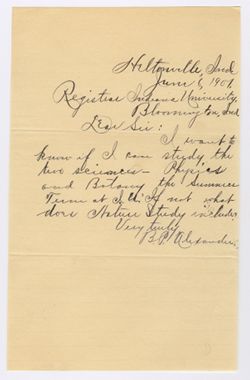 Heltonville, Ind.
June 6, 1901.
Registrar Indiana University,
Bloomington, Ind
Dear Sir:
I want to
know if I can study, the
two sciences - Physics
and Botany the Summer
Term at I.U. If not what
does Nature Study include,
Very truly
B.P. Alexander.